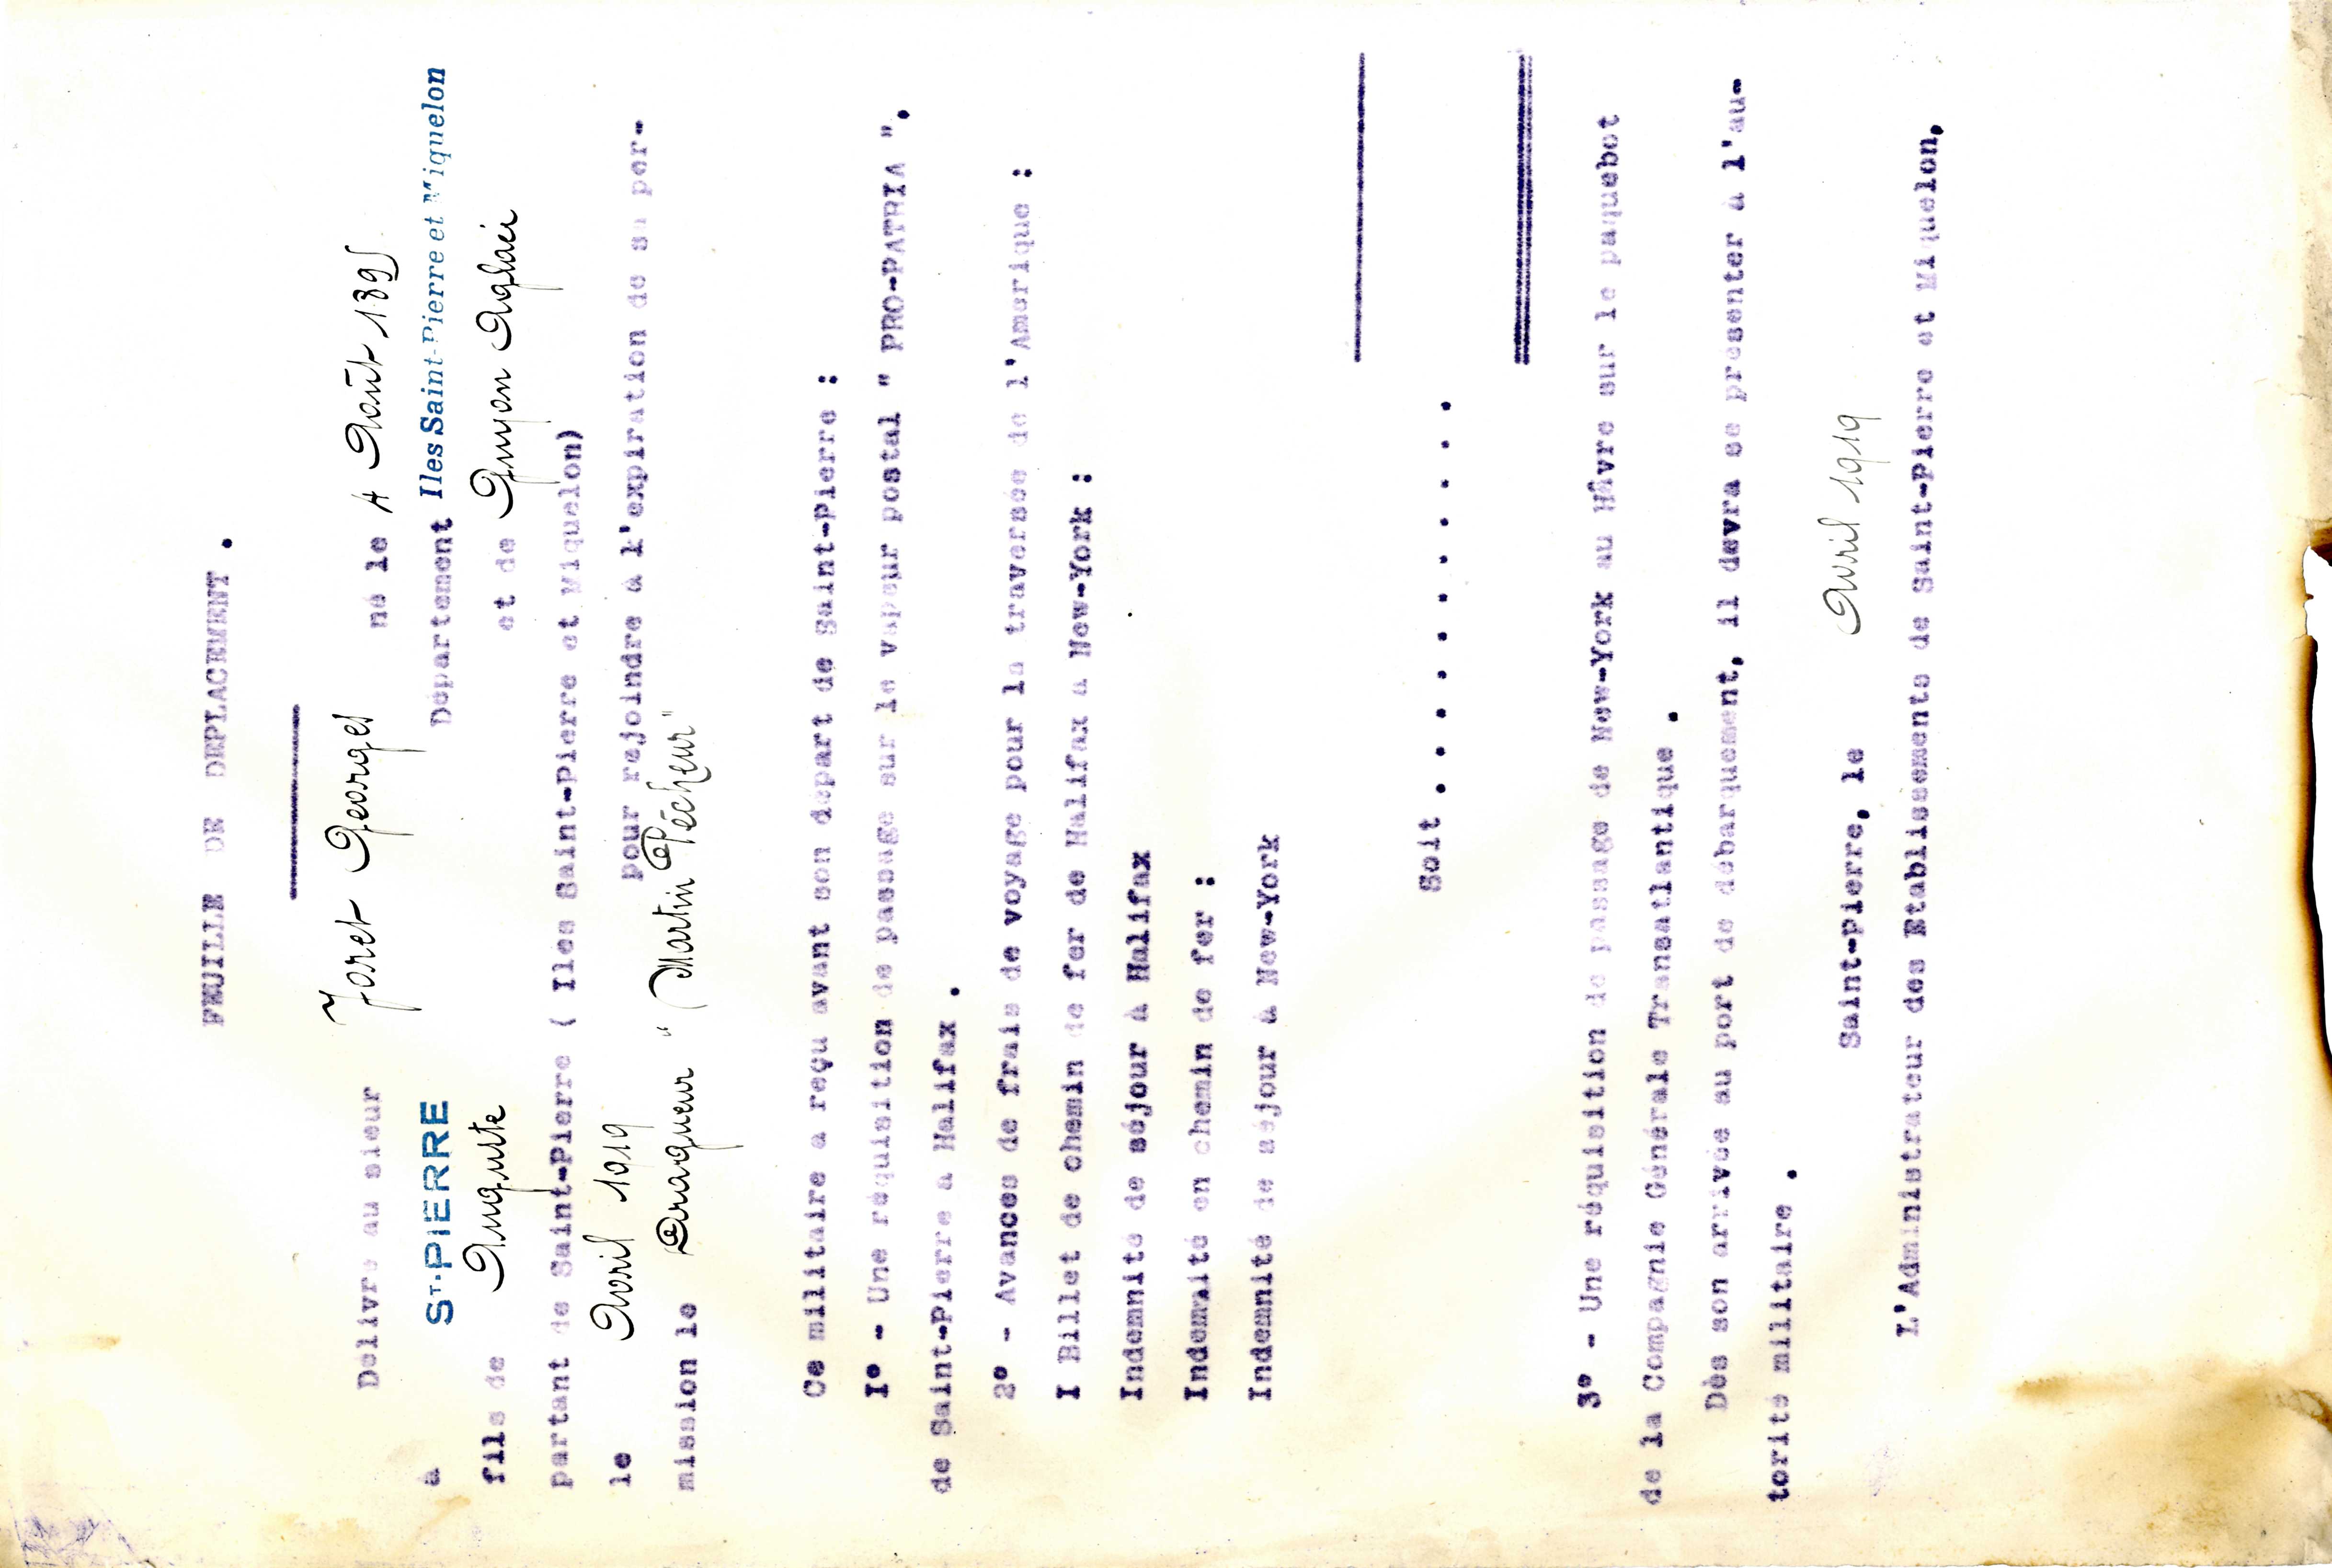 FEUILLE DE DEPLACEMENT .
Délivré au sieur Foret Georges né le 4 Août 1895
à ST-PIERRE Département Iles Saint-Pierre et Miquelon
fils de Auguste et de Guyon Aglaé
partant de Saint-Pierre ( Iles Saint-Pierre et Miquelon)
le Avril 1919 pour rejoindre à l'expiration de sa per-
mission le Dragueur " Martin Pêcheur"
Ce militaire a reçu avant son départ de Saint-Pierre :
I° - Une réquisition de passage sur le vapeur postal " PRO-PATRIA ".
de Saint-Pierre à Halifax .
2° - Avances de frais de voyage pour la traversée de l'Amérique :
I Billet de chemin de fer de Halifax à New-York :
Indemnité de séjour à Halifax
Indemnité en chemin de fer :
Indemnité de séjour à New-York
Soit . . . . . . . . . . .
3° - Une réquisition de passage de New-York au Hâvre sur le paquebot
de la Compagnie Générale Transatlantique .
Dès son arrivée au port de débarquement, il devra se présenter à l'au-
torité militaire .
Saint-Pierre, le Avril 1919
L'Administrateur des Etablissements de Saint-Pierre et Miquelon,